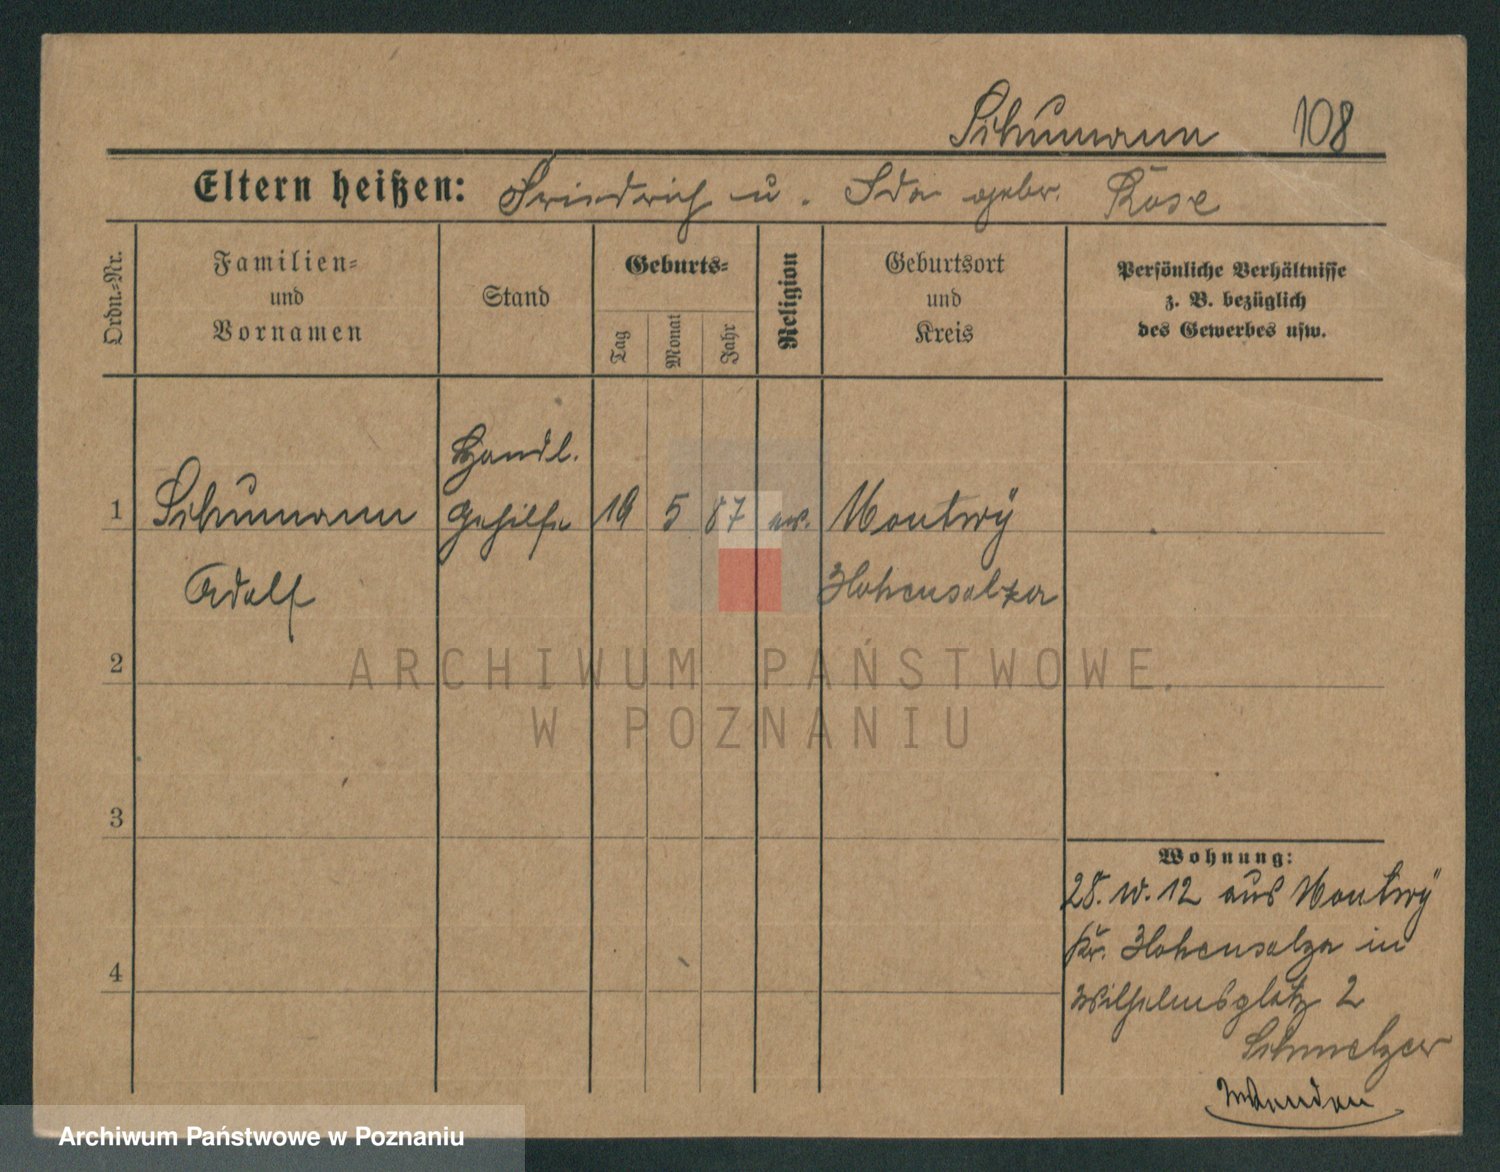 Schumann 108
Eltern heißen: Friedrich u. Ida gebr. Rose
Ordn.-Nr.
Familien-
und
Vornamen
Stand
Geburts-
Tag
Monat
Jahr
Religion
Geburtsort
und
Kreis
Persönliche Verhältnisse
z. B. bezüglich
des Gewerbes usw.
Handl.
1 Schumann Gehilfe 19 5 87 ev. Montwy
Adolf Hohensalza
2
ARCHIWUM PAŃSTWOWE
W POZNANIU
3
Wohnung:
28. 10. 12 aus Montwy
Kr. Hohensalza in
4
Wilhelmsplatz 2
Schmelzer
Archiwum Państwowe w Poznaniu